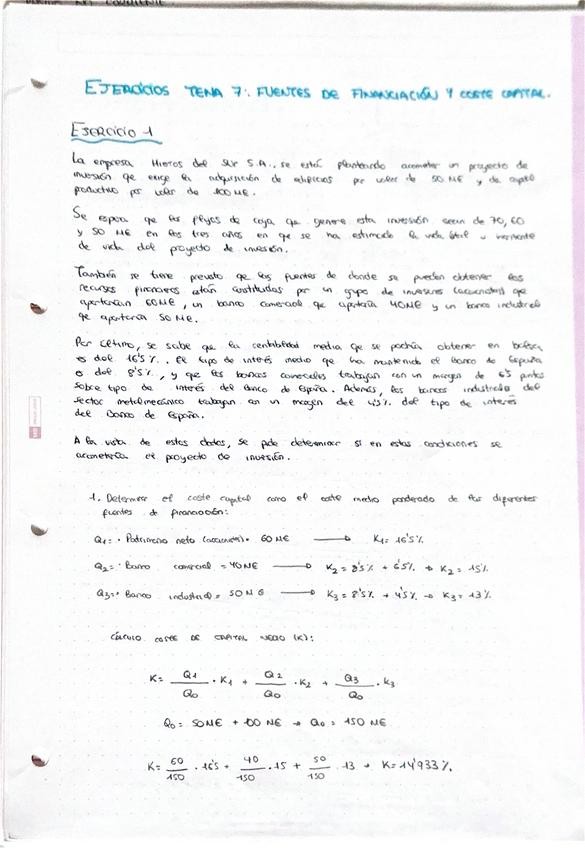 EJERCICIOS TEMA 7: FUENTES DE FINANCIACIÓN Y COSTE CAPITAL.
EJERCICIO 1
La empresa Hierros del Sur S.A., se está planteando acometer un proyecto de
inversión que exige la adquisición de edificios por valor de 50 M€ y de capital
productivo por valor de 100 M€.
Se espera que los flujos de caja que genere esta inversión sean de 70, 60
y 50 M€ en los tres años en que se ha estimado la vida útil u horizonte
de vida del proyecto de inversión.
También se tiene previsto que las fuentes de donde se pueden obtener los
recursos financieros están constituidas por un grupo de inversores (accionistas) que
aportarían 60 M€, un banco comercial que aportaría 40 M€ y un banco industrial
que aportaría 50 M€.
Por último, se sabe que la rentabilidad media que se podría obtener en bolsa
es del 16'5%. El tipo de interés medio que ha mantenido el Banco de España
es del 8'5%, y que los bancos comerciales trabajan con un margen de 6'5 puntos
sobre tipo de interés del Banco de España. Además, los bancos industriales del
sector metalmecánico trabajan con un margen del 4'5% del tipo de interés
del Banco de España.
A la vista de estos datos, se pide determinar si en estas condiciones se
acometería el proyecto de inversión.
1. Determinar el coste capital como el coste medio ponderado de las diferentes
fuentes de financiación:
Q1 = · Patrimonio neto (accionistas) = 60 M€ → K1 = 16'5%
Q2 = · Banco comercial = 40 M€ → K2 = 8'5% + 6'5% → K2 = 15%
Q3 = · Banco industrial = 50 M€ → K3 = 8'5% + 4'5% → K3 = 13%
CÁLCULO COSTE DE CAPITAL MEDIO (K):
K = Q1/Q0 · K1 + Q2/Q0 · K2 + Q3/Q0 · K3
Q0 = 50 M€ + 100 M€ → Q0 = 150 M€
K = 60/150 · 16'5 + 40/150 · 15 + 50/150 · 13 → K = 14'933%.